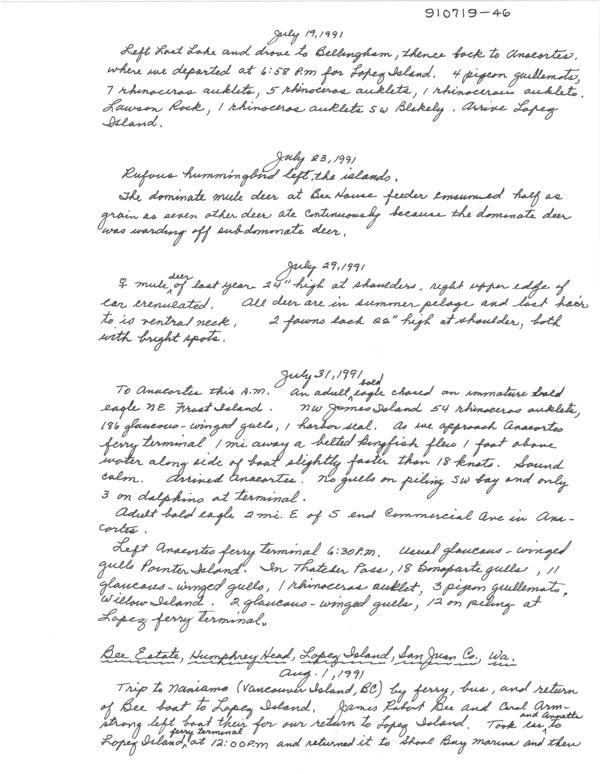 910719-46
July 19, 1991
Left Lost Lake and drove to Bellingham, thence back to Anacortes.
where we departed at 6:58 P.M for Lopez Island. 4 pigeon guillemots,
7 rhinoceros auklets, 5 rhinoceros auklets, 1 rhinocerous auklets.
Lawson Rock, 1 rhinoceros auklets SW Blakely. Arrive Lopez
Island.
July 23, 1991
Rufous hummingbird left the islands.
The dominate mule deer at Bee House feeder consumed half as
grain as seven other deer ate continuously because the dominate deer
was warding off subdominate deer.
July 29, 1991
♀ mule deer of last year 24" high at shoulders, right upper edge of
ear crenulated. All deer are in summer pelage and last hair
to is ventral neck. 2 fawns each 22" high at shoulder, both
with bright spots.
July 31, 1991
To Anacortes this A.M. An adult bald eagle chased an immature bald
eagle NE Frost Island. NW James Island 54 rhinoceros auklets,
186 glaucous-winged gulls, 1 harbor seal. As we approach Anacortes
ferry terminal 1 mi. away a belted kingfish flew 1 foot above
water along side of boat slightly faster than 18 knots. Sound
calm. Arrived Anacortes. No gulls on piling SW bay and only
3 on dolphins at terminal.
Adult bald eagle 2 mi. E of S end Commercial Ave in Ana-
cortes.
Left Anacortes ferry terminal 6:30 P.M. Usual glaucous-winged
gulls Pointer Island. In Thatcher Pass, 18 Bonaparte gulls, 11
glaucous-winged gulls, 1 rhinoceros auklet, 3 pigeon guillemots,
Willow Island. 2 glaucous-winged gulls, 12 on piling at
Lopez ferry terminal.
Bee Estate, Humphrey Head, Lopez Island, San Juan Co., Wa.
Aug. 1, 1991
Trip to Naniamo (Vancouver Island, BC) by ferry, bus, and return
of Bee boat to Lopez Island. James Robert Bee and Carol Arm-
strong left boat their for our return to Lopez Island. Took car and Annette to
Lopez Island ferry terminal at 12:00 P.M and returned it to Shoal Bay Marina and then